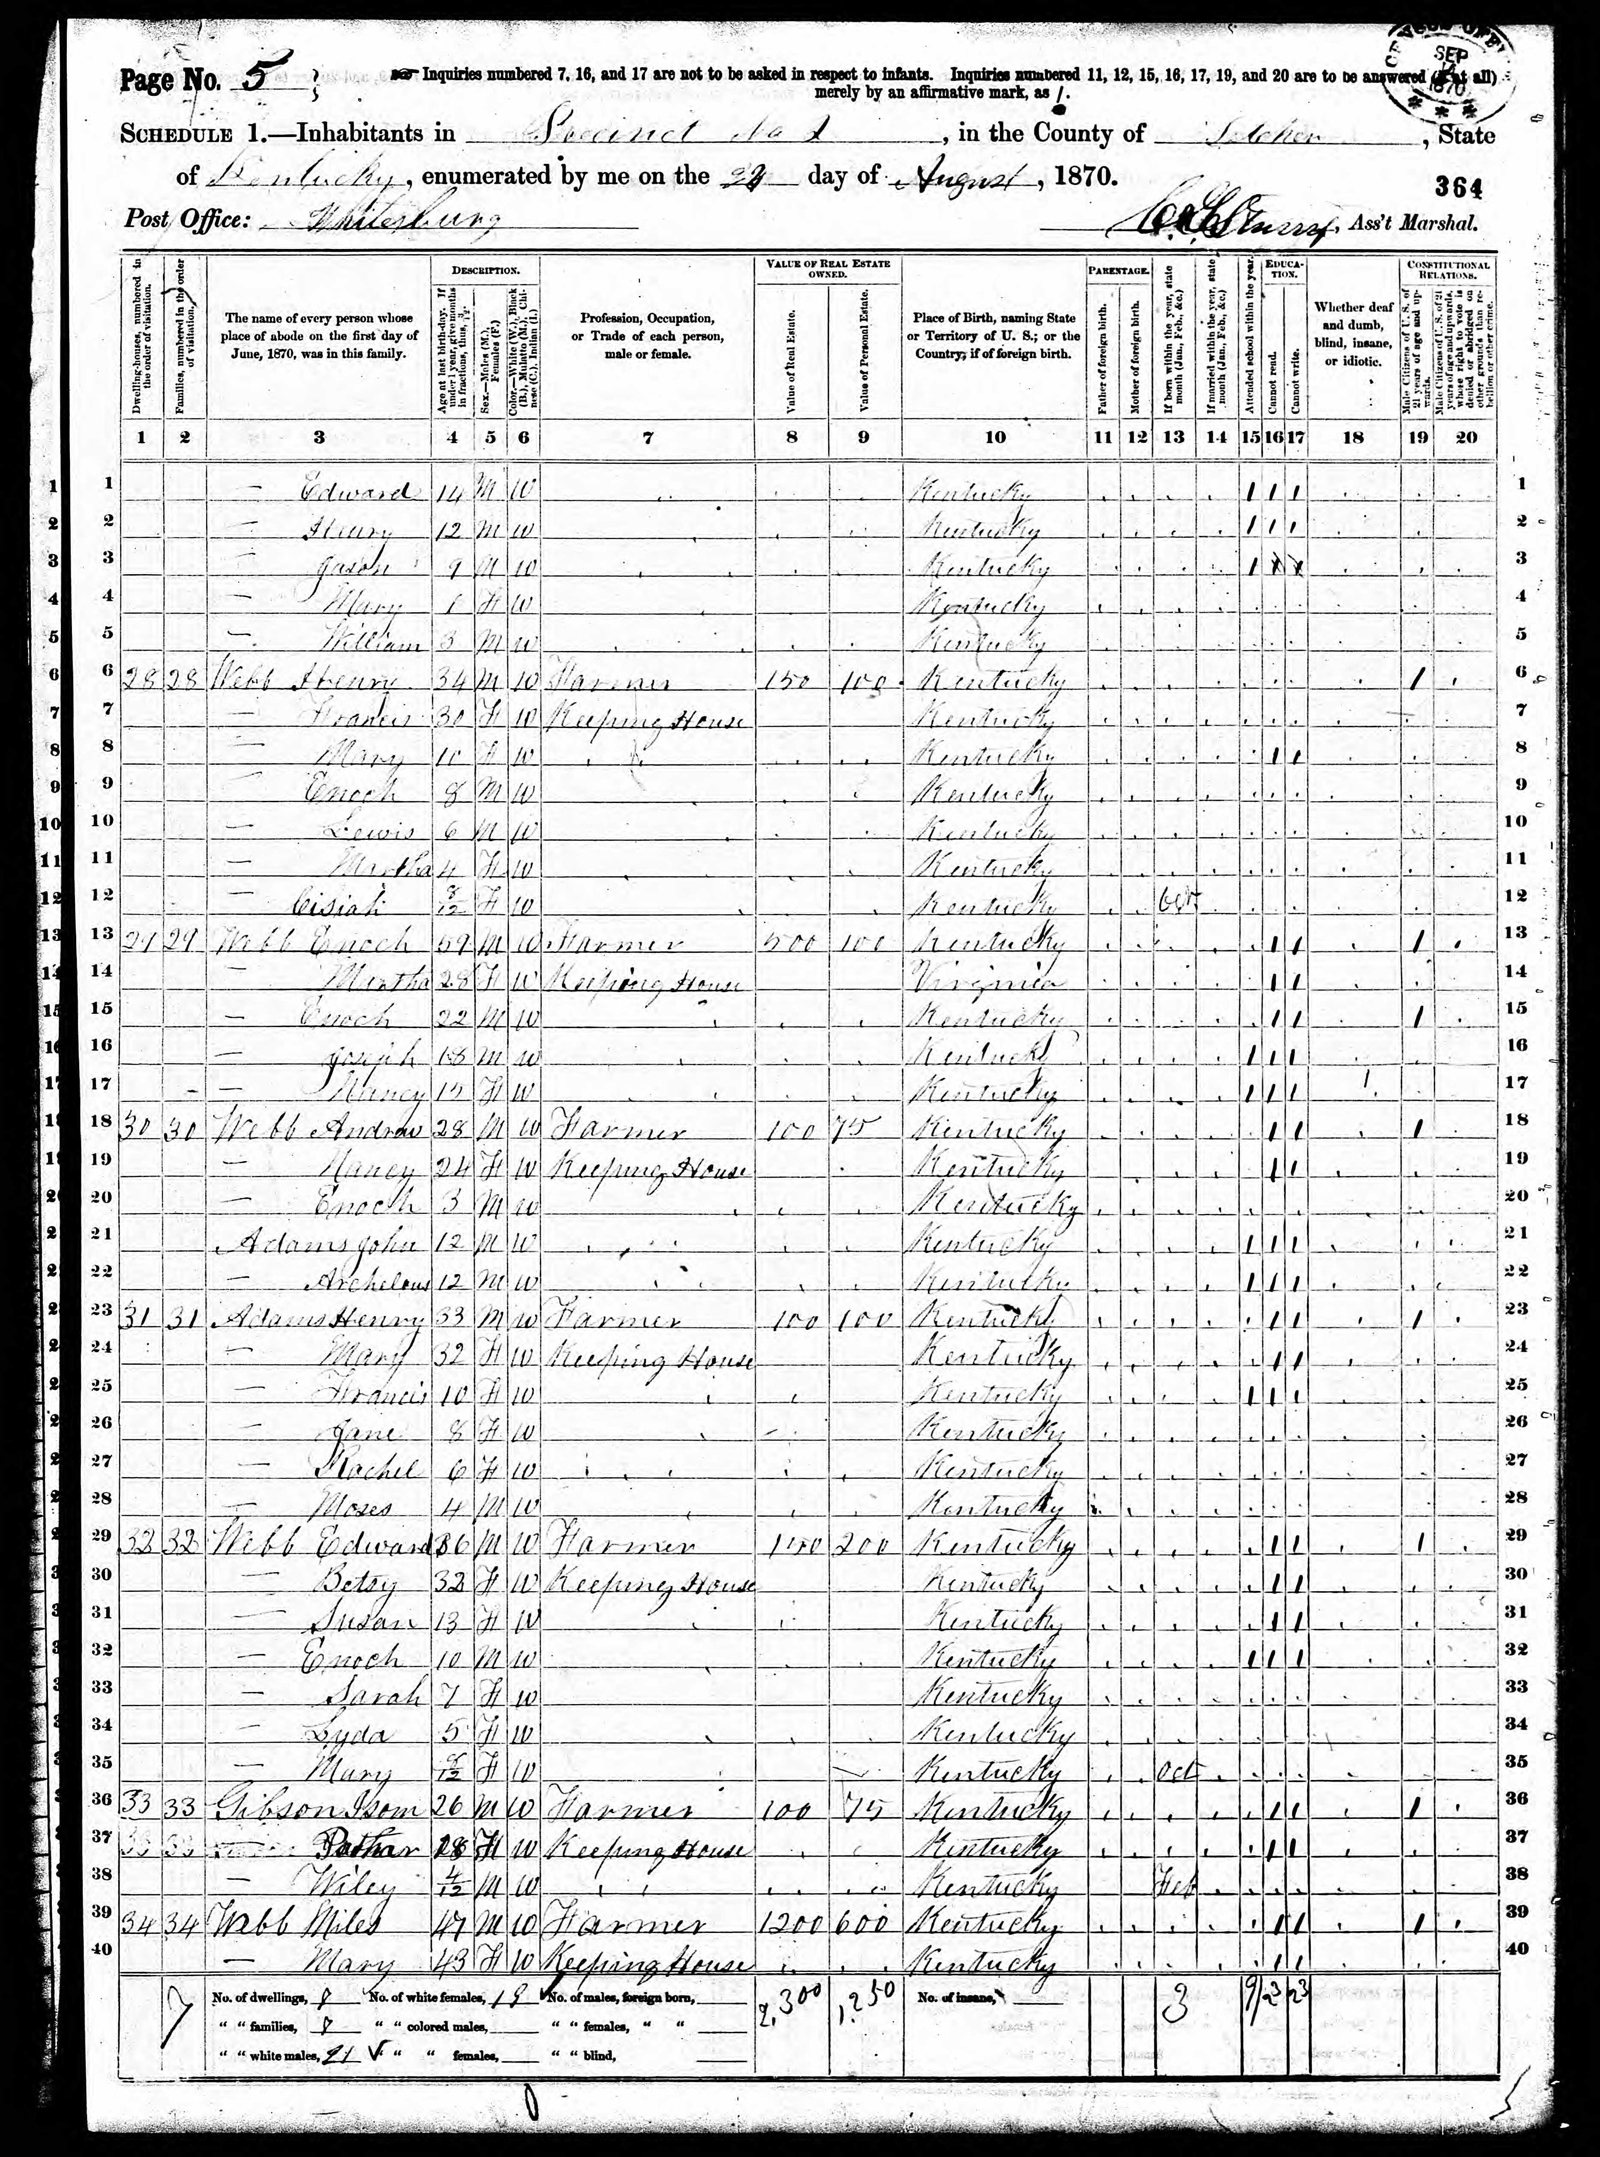 Page No. 5
Inquiries numbered 7, 16, and 17 are not to be asked in respect to infants. Inquiries numbered 11, 12, 15, 16, 17, 19, and 20 are to be answered (if at all)
merely by an affirmative mark, as /.
SEP 1870
SCHEDULE 1.—Inhabitants in Precinct No 1, in the County of Letcher, State
of Kentucky, enumerated by me on the day of August, 1870.
364
Post Office: Whitesburg
Ass't Marshal.
Dwelling-houses, numbered in the order of visitation.
Families, numbered in the order of visitation.
The name of every person whose place of abode on the first day of June, 1870, was in this family.
DESCRIPTION.
Age at last birth-day. If under 1 year, give months in fractions, thus, 3/12.
Sex.—Males (M.), Females (F.)
Color.—White (W.), Black (B.), Mulatto (M.), Chinese (C.), Indian (I.)
Profession, Occupation, or Trade of each person, male or female.
VALUE OF REAL ESTATE OWNED.
Value of Real Estate.
Value of Personal Estate.
Place of Birth, naming State or Territory of U. S.; or the Country, if of foreign birth.
PARENTAGE.
Father of foreign birth.
Mother of foreign birth.
If born within the year, state month (Jan., Feb., &c.)
If married within the year, state month (Jan., Feb., &c.)
Attended school within the year.
EDUCATION.
Cannot read.
Cannot write.
Whether deaf and dumb, blind, insane, or idiotic.
CONSTITUTIONAL RELATIONS.
Male Citizens of U. S. of 21 years of age and upwards.
Male Citizens of U. S. of 21 years of age and upwards, whose right to vote is denied or abridged on other grounds than rebellion or other crime.
1 2 3 4 5 6 7 8 9 10 11 12 13 14 15 16 17 18 19 20
1 — Edward 14 M W Kentucky / / / 1
2 — Henry 12 M W Kentucky / / / 2
3 — Jason 9 M W Kentucky / 3
4 — Mary 1 F W Kentucky 4
5 — William 3 M W Kentucky 5
6 28 28 Webb Henry 34 M W Farmer 150 100 Kentucky / 6
7 — Francis 30 F W Keeping House Kentucky 7
8 — Mary 10 F W Kentucky / / 8
9 — Enoch 8 M W Kentucky 9
10 — Lewis 6 M W Kentucky 10
11 — Martha 4 F W Kentucky 11
12 — 8/12 F W Kentucky Oct 12
13 29 29 Webb Enoch 59 M W Farmer 500 100 Kentucky / / / 13
14 — Martha 28 F W Keeping House Virginia / / 14
15 — Enoch 22 M W Kentucky / / / 15
16 — Joseph 18 M W Kentucky / / / 16
17 — Nancy 15 F W Kentucky / / / 17
18 30 30 Webb Andrew 28 M W Farmer 100 75 Kentucky / / / 18
19 — Nancy 24 F W Keeping House Kentucky / / 19
20 — Enoch 3 M W Kentucky 20
21 Adams John 12 M W Kentucky / / / 21
22 — Archelous 12 M W Kentucky / / / 22
23 31 31 Adams Henry 33 M W Farmer 100 100 Kentucky / / / 23
24 — Mary 32 F W Keeping House Kentucky / / 24
25 — Francis 10 F W Kentucky / / / 25
26 — Jane 8 F W Kentucky 26
27 — Rachel 6 F W Kentucky 27
28 — Moses 4 M W Kentucky 28
29 32 32 Webb Edward 36 M W Farmer 150 200 Kentucky / / / 29
30 — Betsy 32 F W Keeping House Kentucky / / 30
31 — Susan 13 F W Kentucky / / 31
32 — Enoch 10 M W Kentucky / / / 32
33 — Sarah 7 F W Kentucky 33
34 — Lyda 5 F W Kentucky 34
35 — Mary 8/12 F W Kentucky Oct 35
36 33 33 Gibson Isom 26 M W Farmer 100 75 Kentucky / / / 36
37 F W Keeping House Kentucky / / 37
38 — Wiley 4/12 M W Kentucky Feb 38
39 34 34 Webb Miles 47 M W Farmer 1200 600 Kentucky / / / 39
40 — Mary 43 F W Keeping House Kentucky / / 40
7 No. of dwellings, 8 No. of white females, 19 No. of males, foreign born, 2,300 1,250 No. of insane, 3 9 23 23
" " families, 8 " " colored males, " " females, " "
" " white males, 21 " " females, " " blind,